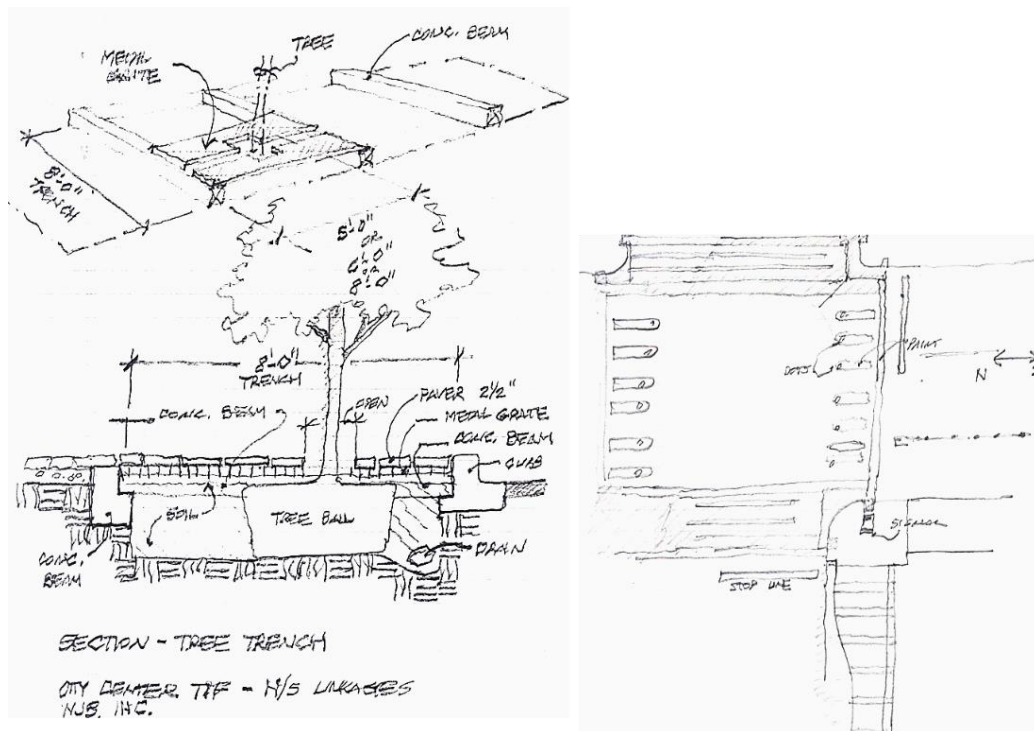 TREE
CONC. BEAM
METAL
GRATE
8'-0"
TRENCH
5'-0"
OR
6'-0"
OR
8'-0"
8'-0"
TRENCH
CONC. BEAM
OPEN
PAVER 2 1/2"
METAL GRATE
CONC. BEAM
CURB
SOIL
TREE BALL
DRAIN
CONC.
BEAM
SECTION - TREE TRENCH
CITY CENTER TIF - N/S LINKAGES
NJB, INC.
DOTS
PAINT
N
SIGNAL
STOP LINE